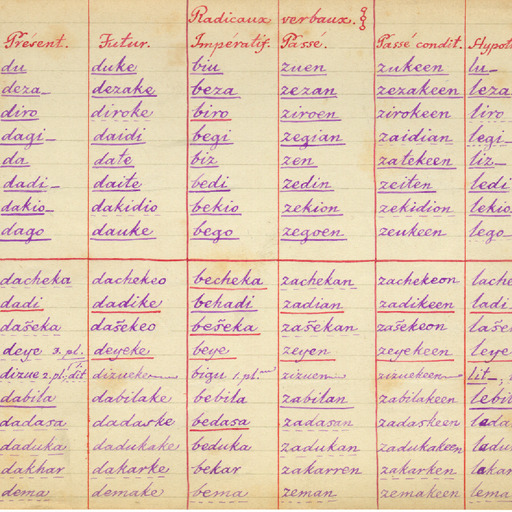 Radicaux verbaux.
Présent. Futur. Impératif. Passé. Passé condit. Hypot
du duke biu zuen zukeen lu_
deza_ dezake beza zezan zezakeen leza
diro diroke biro ziroen zirokeen liro
dagi_ daidi begi zegian zaidian legi_
da date biz zen zatekeen liz_
dadi_ daite bedi zedin zeiten ledi
dakio_ dakidio bekio zekion zekidion lekio
dago dauke bego zegoen zeukeen lego
dacheka dachekeo becheka zachekan zachekeon lache
dadi dadike behadi zadian zadikeen ladi
dašeka dašekeo bešeka zašekan zašekeon laše
deye 3. pl. deyeke beye zeyen zeyekeen leye
dizue 2. pl. dit dizueke bigu 1. pl. zizuen zizuekeen lit_
dabila dabilake bebila zabilan zabilakeen lebil
dadasa dadaske bedasa zadasan zadaskeen lada
daduka dadukake beduka zadukan zadukakeen ladu
dakhar dakarke bekar zakarren zakarken lakar
dema demake bema zeman zemakeen lema